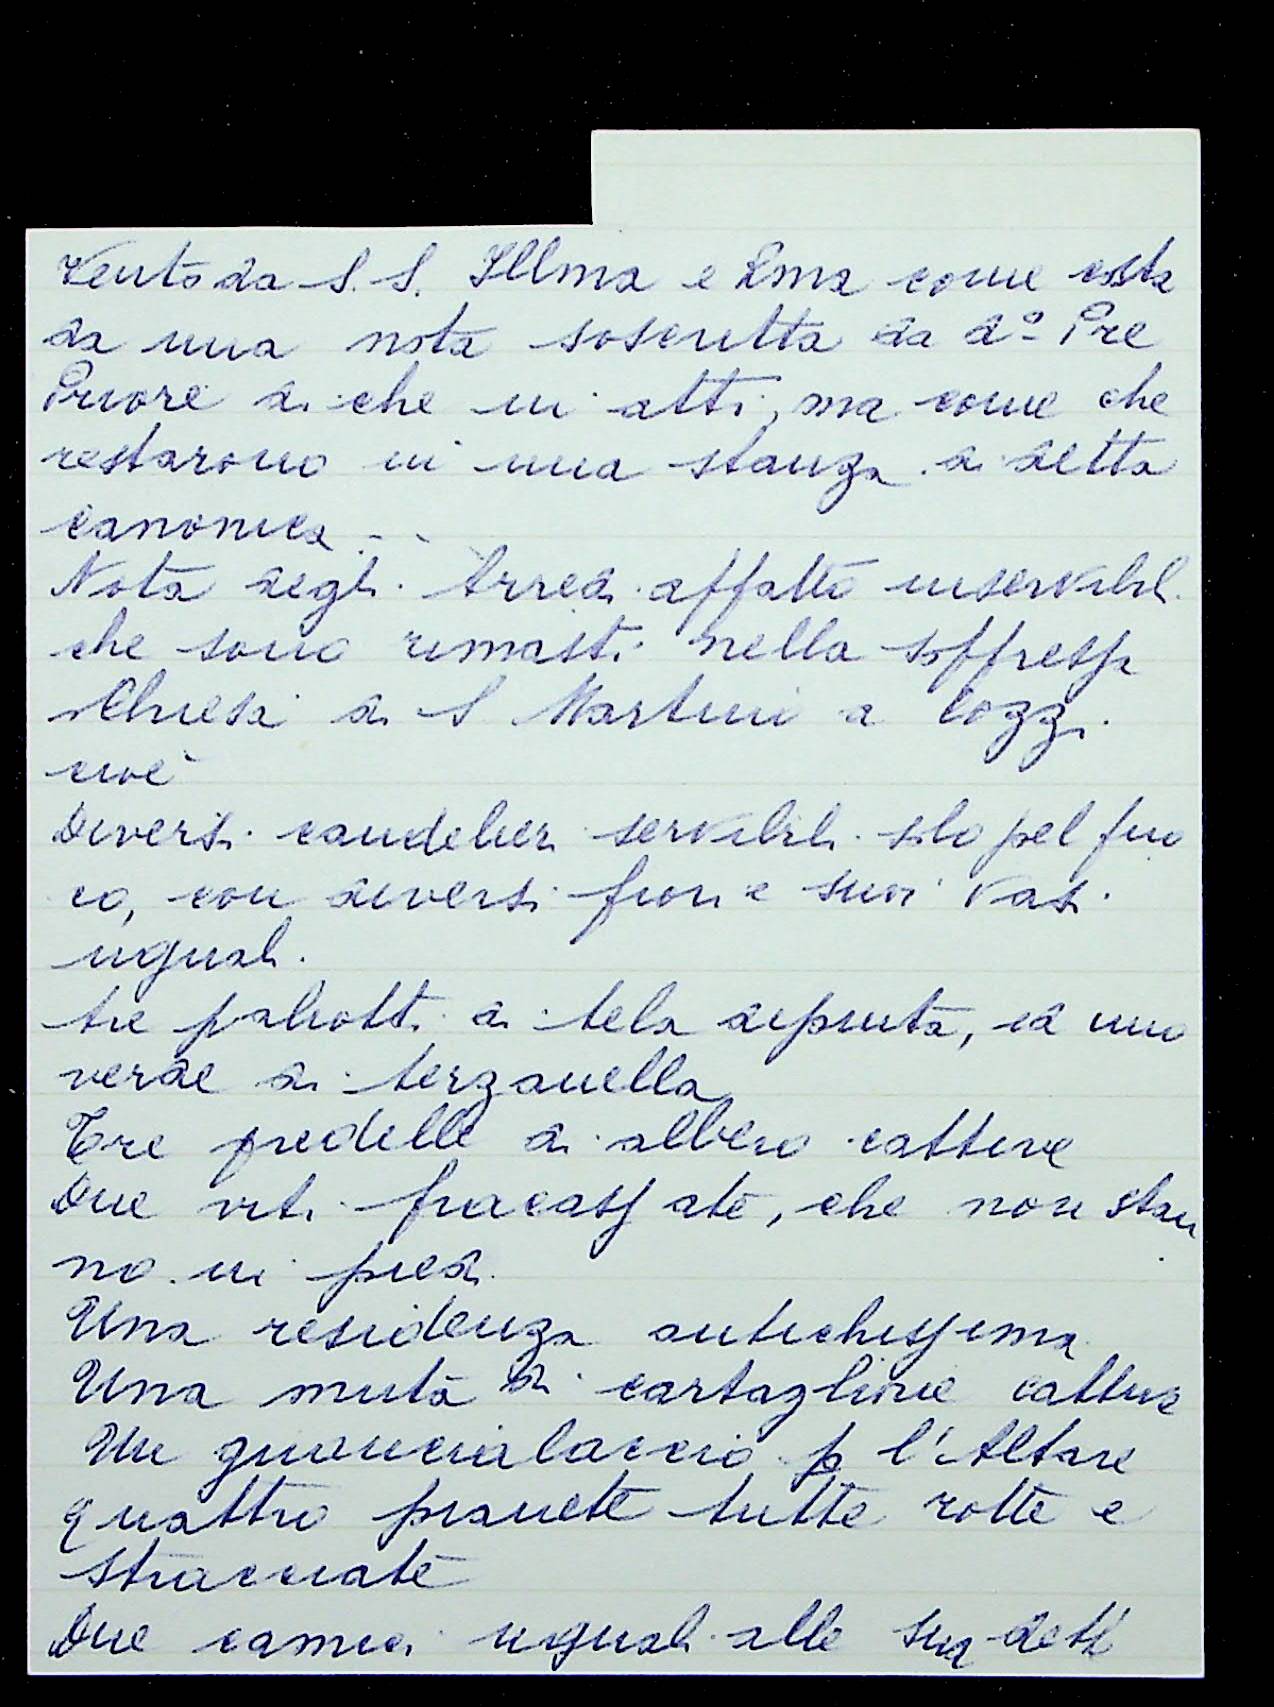 Vento da S. S. Illma e Rma come costa
da una nota soscritta da do Pre
Priore di che in atti, ma come che
restarono in una stanza di detta
canonica - -
Nota degli Arredi affatto inservibili
che sono rimasti nella soppressa
Chiesa di S Martino a Cozzi
cioè
Diversi candelieri servibili solo pel fuo
co, con diversi fiori e suoi vasi
uguali.
tre paliotti di tela dipinta, ed uno
verde di terzanella
Tre predelle di albero cattive
Due viti fracassate, che non stan
no in piedi
Una residenza antichissima
Una muta di cartaglorie cattive
Un guancialaccio p l'Altare
quattro pianete tutte rotte e
stracciate
Due camici uguali alle sud.det.